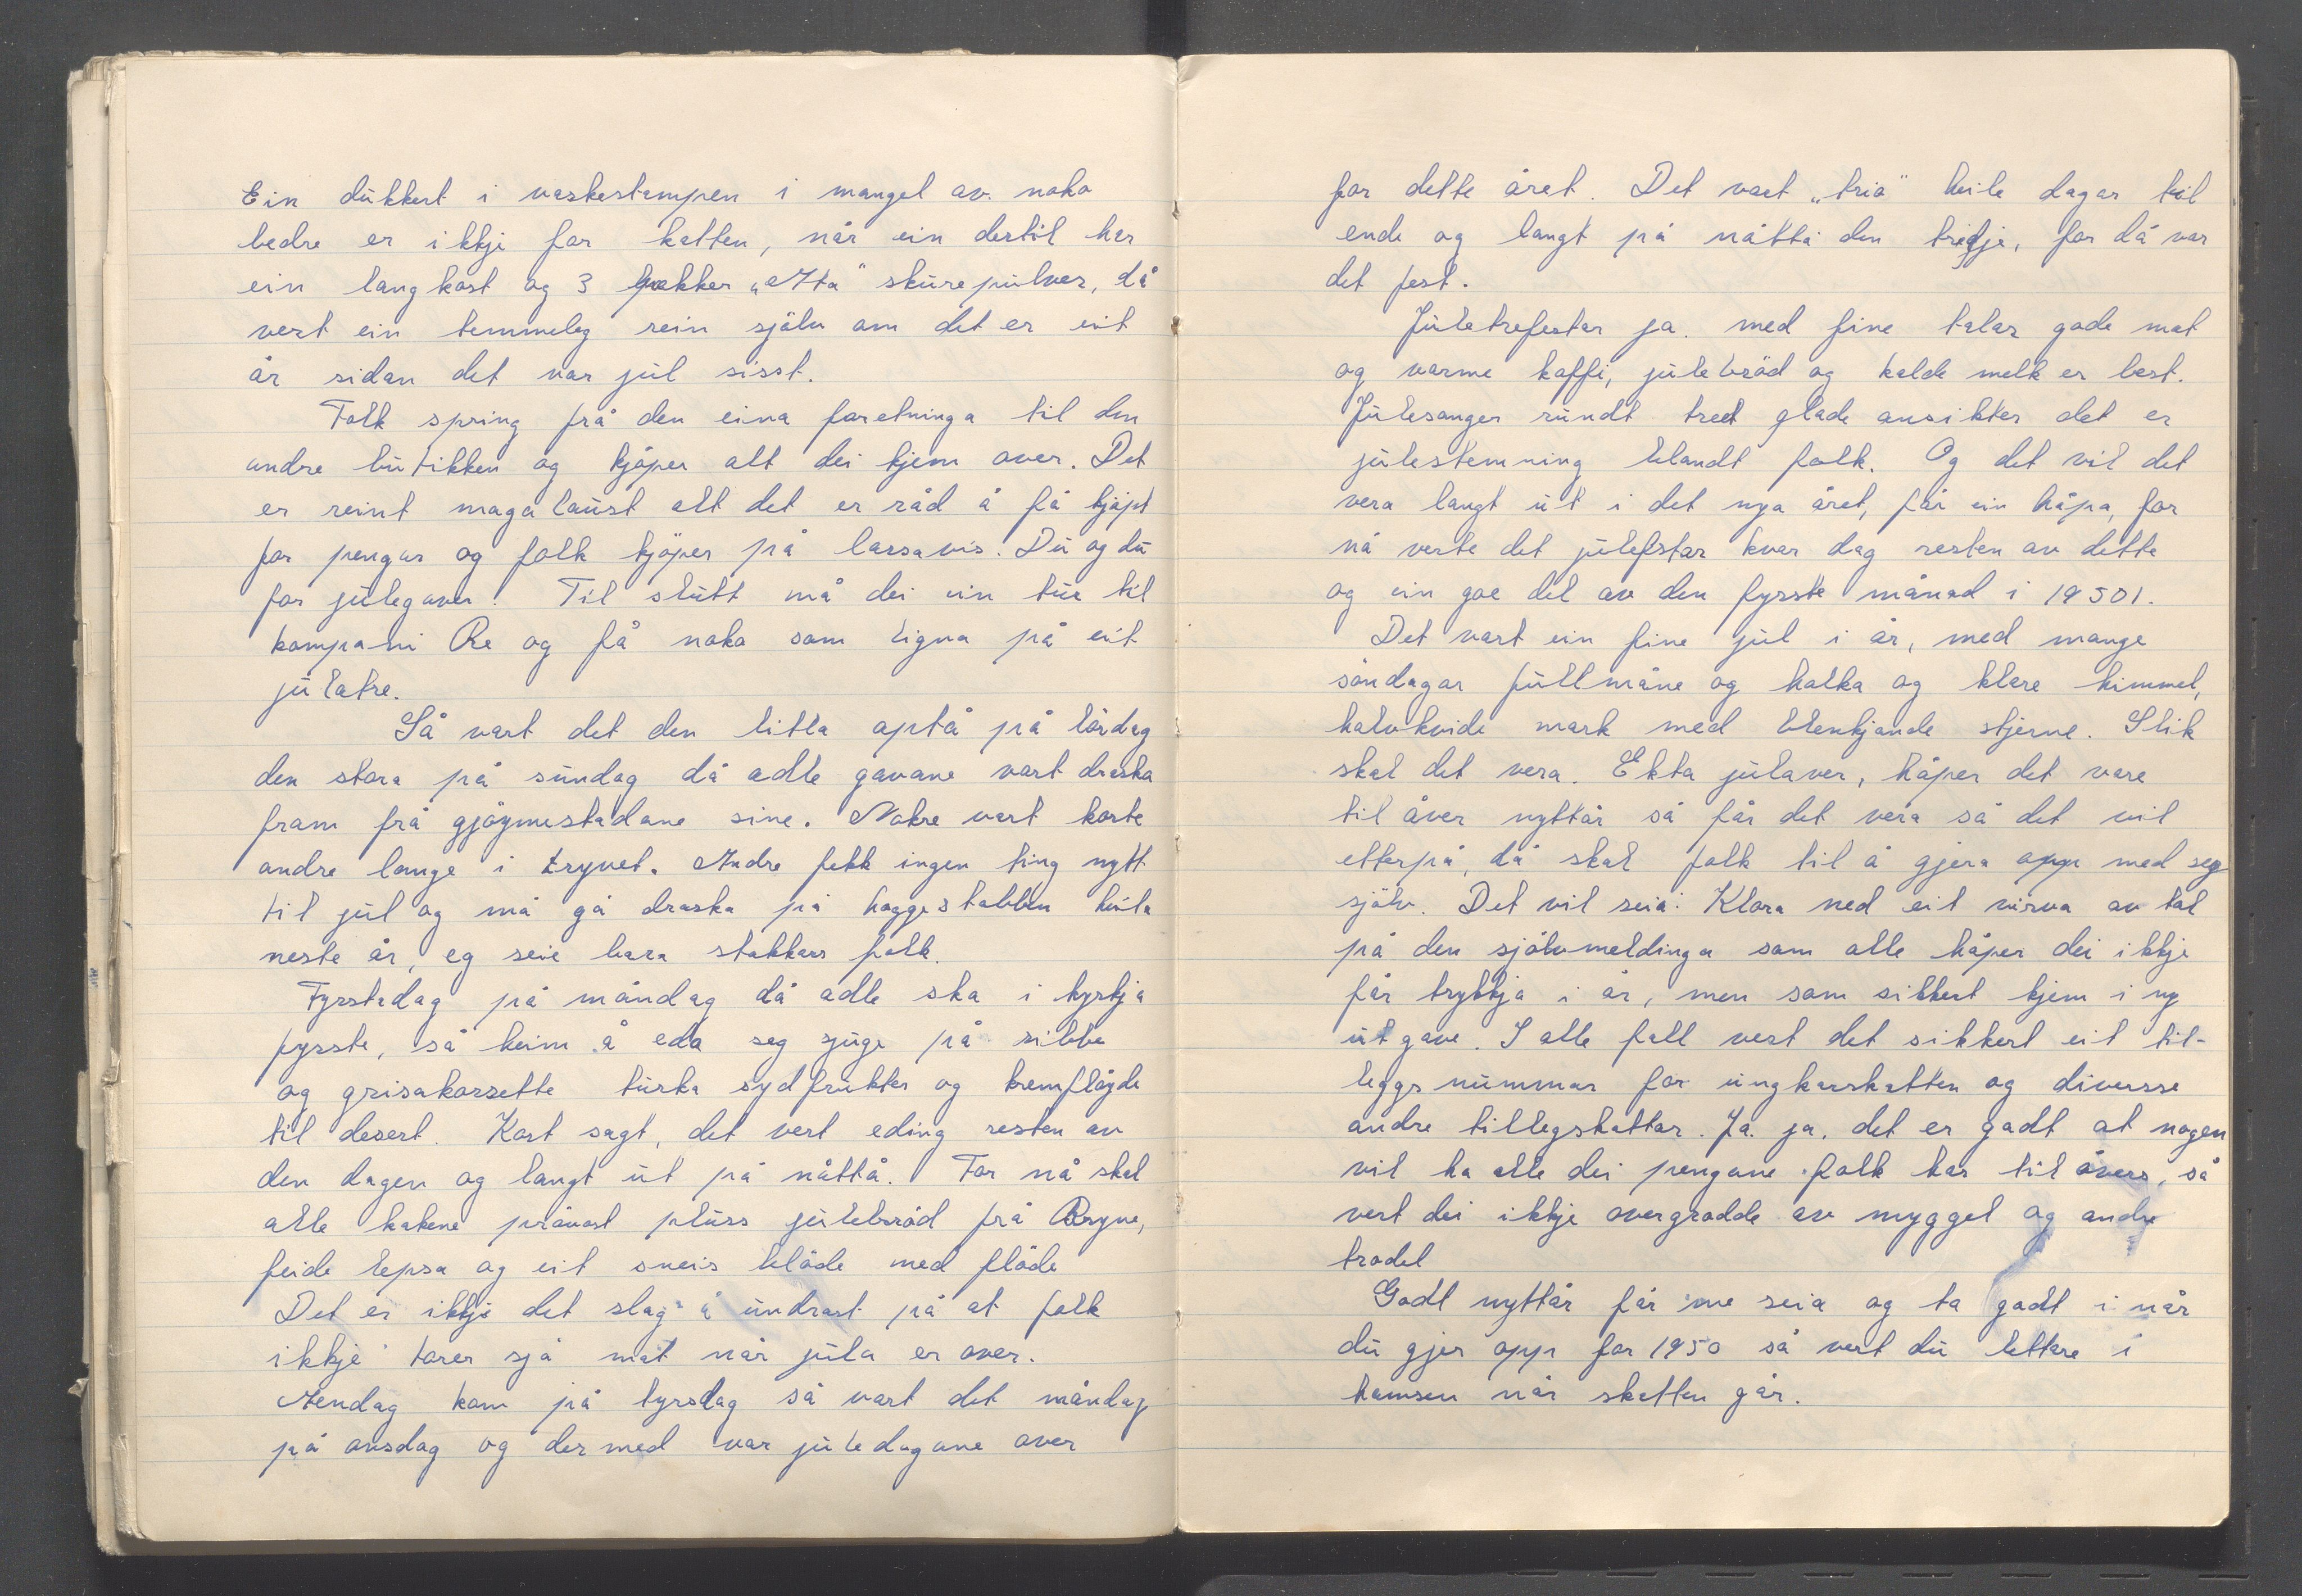 Ein dukkert i vaskestampen i mangel av noko
bedre er ikkje for katten, når ein dertil har
ein langkost og 3 pakker „Ata" skurepulver, då
vert ein temmeleg rein sjölv om det er eit
år sidan det var jul sisst.
Folk spring frå den eina foretninga til den
andre butikken og kjöper alt dei kjem over. Det
er reint magalaust alt det er råd å få kjöpt
for pengar og folk kjöper på lassavis. Du og du
for julegaver! Til slutt må dei ein tur til
kompani Re og få noko som ligna på eit
julatre.
Så vart det den litla aptå på lördag
den stora på sundag då adle gavane vart draska
fram frå gjöymestadane sine. Nokre vart korte
andre lange i trynet. Andre fekk ingen ting nytt
til jul og må gå draska på hoggestabben heila
neste år, eg seie bara stakkars folk.
Fyrstedag på måndag då adle ska i kyrkja
fysste, så heim å eda seg sjuge på ribbe
og grisakorsette turka sydfrukter og kremflöyde
til desert. Kort sagt, det vert eding resten av
den dagen og langt ut på nåttå. For nå skal
alle kakene prövast pluss julebröd frå Bryne,
feide lepsa og eit sneis blöde med flöde
Det er ikkje det slag å undrast på at folk
ikkje torer sjå mat når jula er over.
Aendag kom på tyrsdag så vart det måndag
på onsdag og dermed var juledagane over
for dette året. Det vart „trio" heile dagar til
ende og langt på nåttå den tredje, for då var
det fest.
Juletrefestar ja. med fine talar gode mat
og varme kaffi, julebröd og kalde melk er best.
Julesanger rundt treet glade ansikter det er
julestemning blandt folk. Og det vil det
vera langt ut i det nya året, får ein håpa, for
nå verte det julefstar kvar dag resten av dette
og ein goe del av den fyrste månad i 19501.
Det vart ein fine jul i år, med mange
söndagar fullmåne og kalka og klare himmel,
halvkvide mark med blenkjande stjerne. Slik
skal det vera. Ekta julaver, håper det vare
til över nyttår så får det vera så det vil
etterpå, då skal folk til å gjera opp med seg
sjölv. Det vil seia: Klora ned eit virva av tal
på den sjölvmeldinga som alle håper dei ikkje
får trykkja i år, men som sikkert kjem i ny
utgave. I alle fall vert det sikkert eit til-
leggs nummar for ungkarskatten og diversse
andre tillegskattar. Ja. ja. det er godt at nogen
vil ha alle dei pengane folk har til övers, så
vert dei ikkje overgrodde av myggel og andre
trodel
Godt nyttår får me seia og ta godt i når
du gjer opp for 1950 så vert du lettare i
hamsen når skatten går.